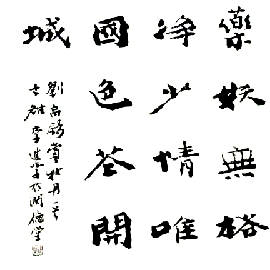 藥妖無格
淨少情唯
國色花開
城
劉禹錫賞牡丹一首